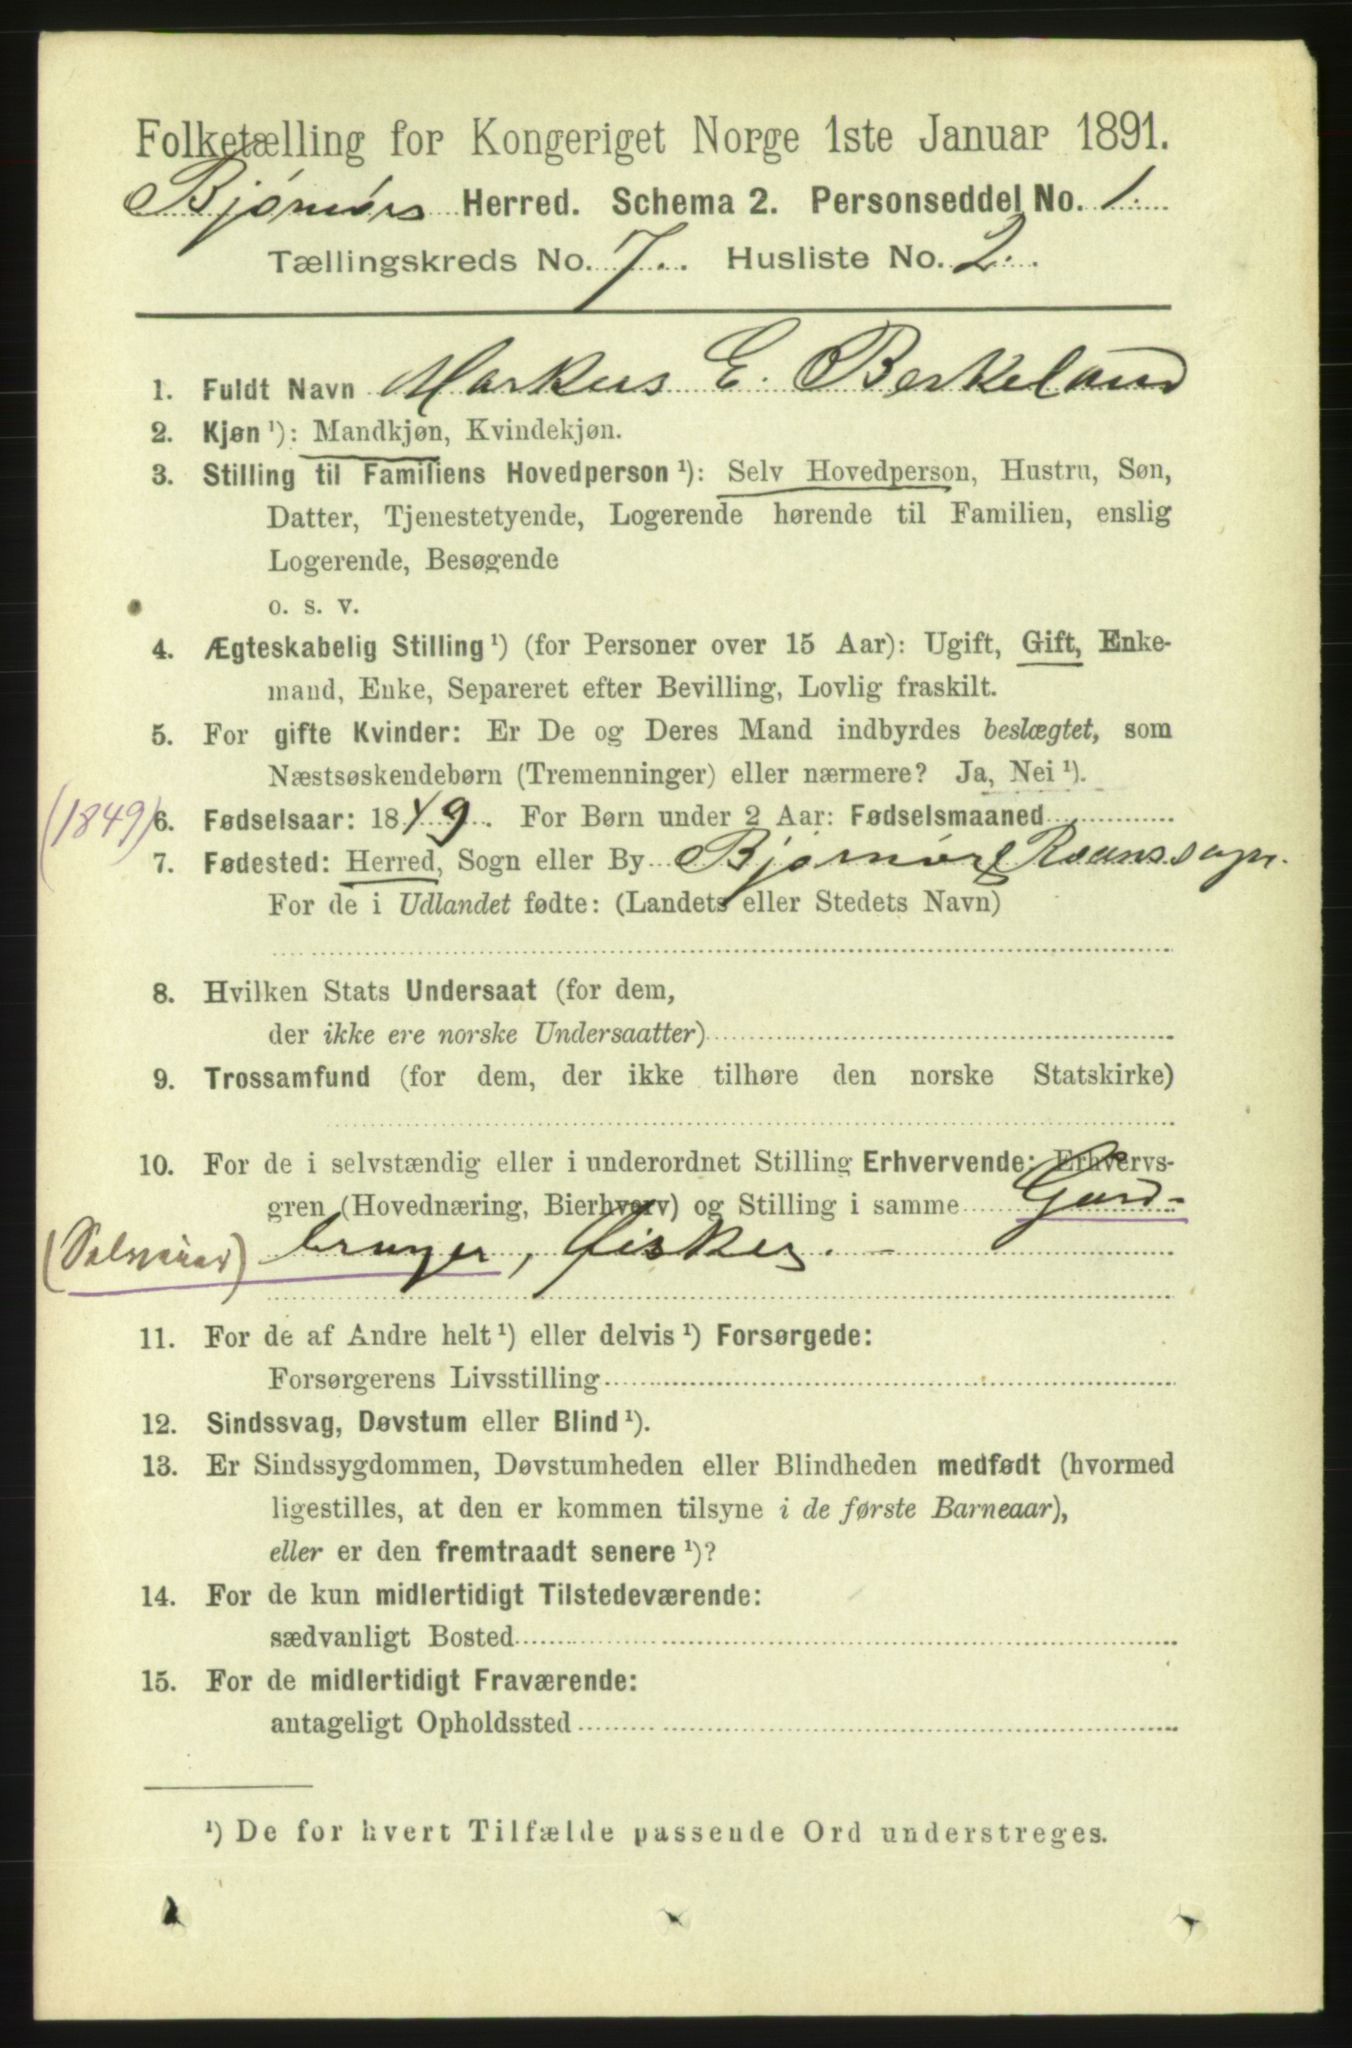 Folketælling for Kongeriget Norge 1ste Januar 1891.
Bjørnørs Herred. Schema 2. Personseddel No. 1.
Tællingskreds No. 7. Husliste No. 2.
1. Fuldt Navn Markus E. Berkeland
2. Kjøn ¹): Mandkjøn, Kvindekjøn.
3. Stilling til Familiens Hovedperson ¹): Selv Hovedperson, Hustru, Søn,
Datter, Tjenestetyende, Logerende hørende til Familien, enslig
Logerende, Besøgende
o. s. v.
4. Ægteskabelig Stilling ¹) (for Personer over 15 Aar): Ugift, Gift, Enke-
mand, Enke, Separeret efter Bevilling, Lovlig fraskilt.
5. For gifte Kvinder: Er De og Deres Mand indbyrdes beslægtet, som
Næstsøskendebørn (Tremenninger) eller nærmere? Ja, Nei ¹).
(1849) 6. Fødselsaar: 1849. For Børn under 2 Aar: Fødselsmaaned
7. Fødested: Herred, Sogn eller By Bjørnør Roans sogn.
For de i Udlandet fødte: (Landets eller Stedets Navn)
8. Hvilken Stats Undersaat (for dem,
der ikke ere norske Undersaatter)
9. Trossamfund (for dem, der ikke tilhøre den norske Statskirke)
10. For de i selvstændig eller i underordnet Stilling Erhvervende: Erhvervs-
gren (Hovednæring, Bierhverv) og Stilling i samme Gard-
(Selveier) bruger, fisker. -
11. For de af Andre helt ¹) eller delvis ¹) Forsørgede:
Forsørgerens Livsstilling
12. Sindssvag, Døvstum eller Blind ¹).
13. Er Sindssygdommen, Døvstumheden eller Blindheden medfødt (hvormed
ligestilles, at den er kommen tilsyne i de første Barneaar),
eller er den fremtraadt senere ¹)?
14. For de kun midlertidigt Tilstedeværende:
sædvanligt Bosted
15. For de midlertidigt Fraværende:
antageligt Opholdssted
¹) De for hvert Tilfælde passende Ord understreges.